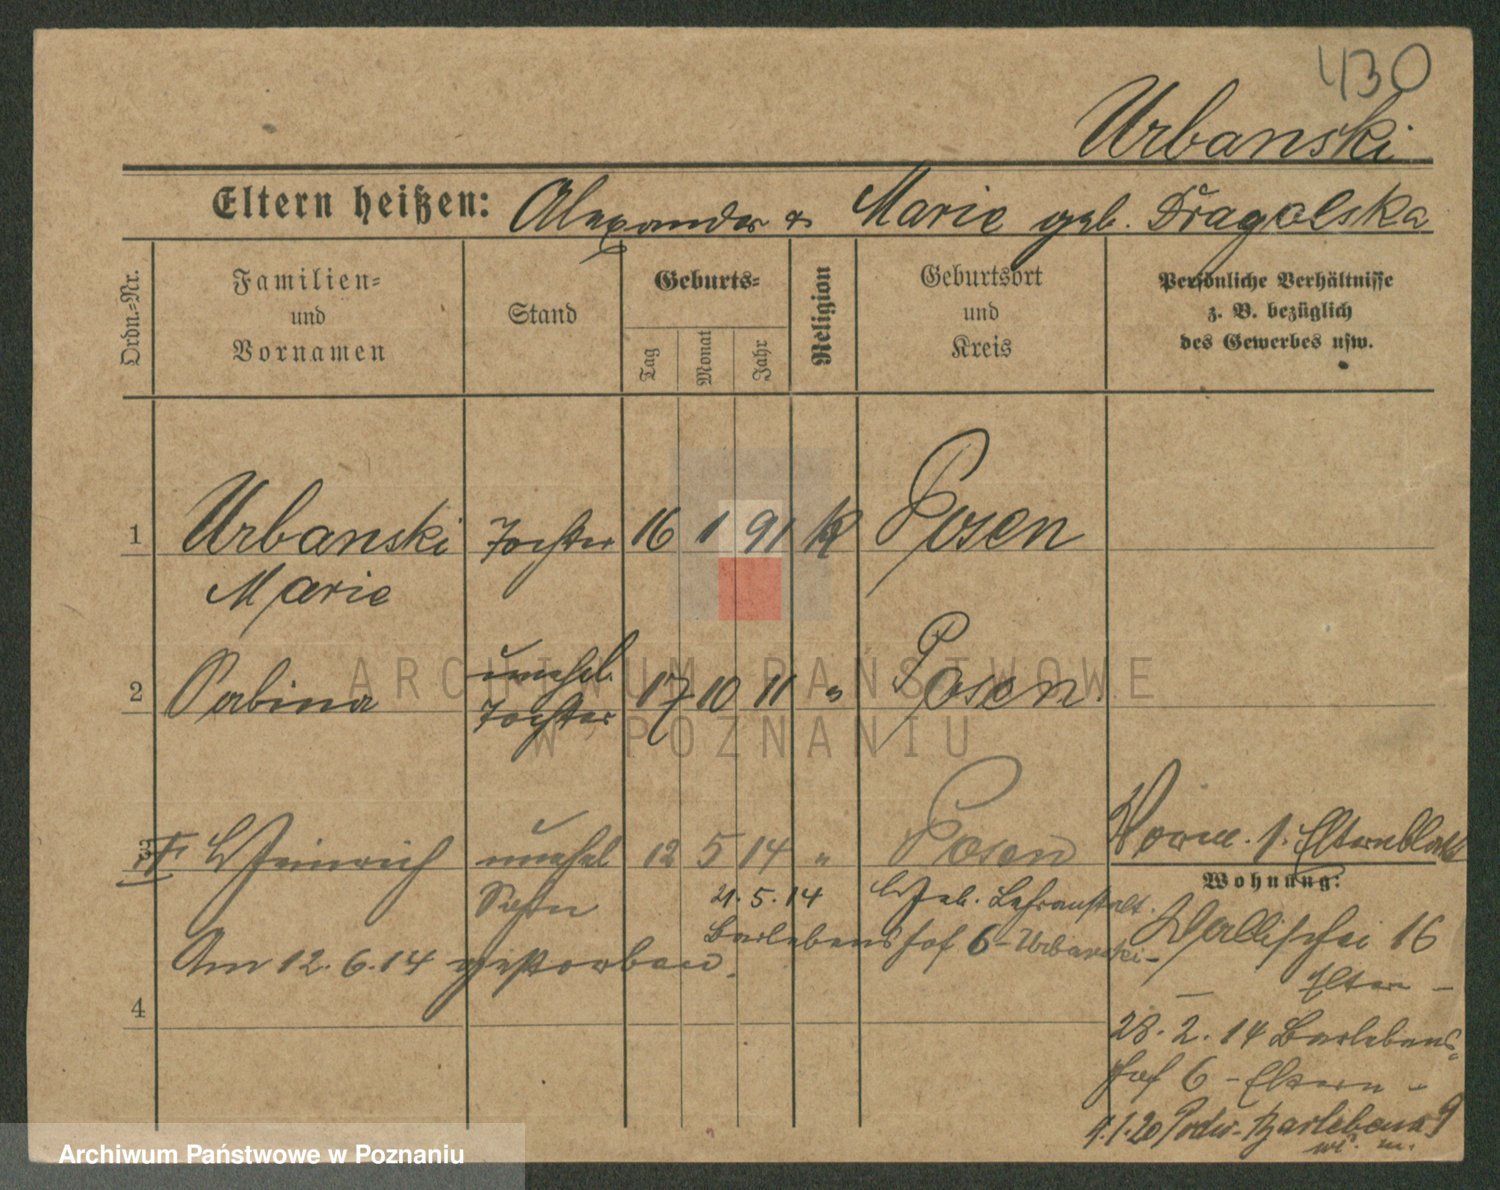 430
Urbanski
Eltern heißen: Alexander & Marie geb. Dragolska
Ordn.-Nr.
Familien-
und
Vornamen
Stand
Geburts-
Tag
Monat
Jahr
Religion
Geburtsort
und
Kreis
Persönliche Verhältnisse
z. B. bezüglich
des Gewerbes usw.
1 Urbanski Tochter 16 1 91 K Posen
Marie
2 Sabina unehel. Tochter 17 10 11 " Posen.
3 Heinrich unehel Sohn 12 5 14 " Posen
Am 12.6.14 gestorben.
21.5.14 Lehranstalt.
Barlebenshof 6 - Urbanski -
4
1. Elternblatt
Wohnung:
Wallischei 16
- Eltern -
28.2.14 Barlebens-
hof 6 - Eltern -
9.1.20 Barlebenshof 9
ARCHIWUM PAŃSTWOWE
W POZNANIU
Archiwum Państwowe w Poznaniu